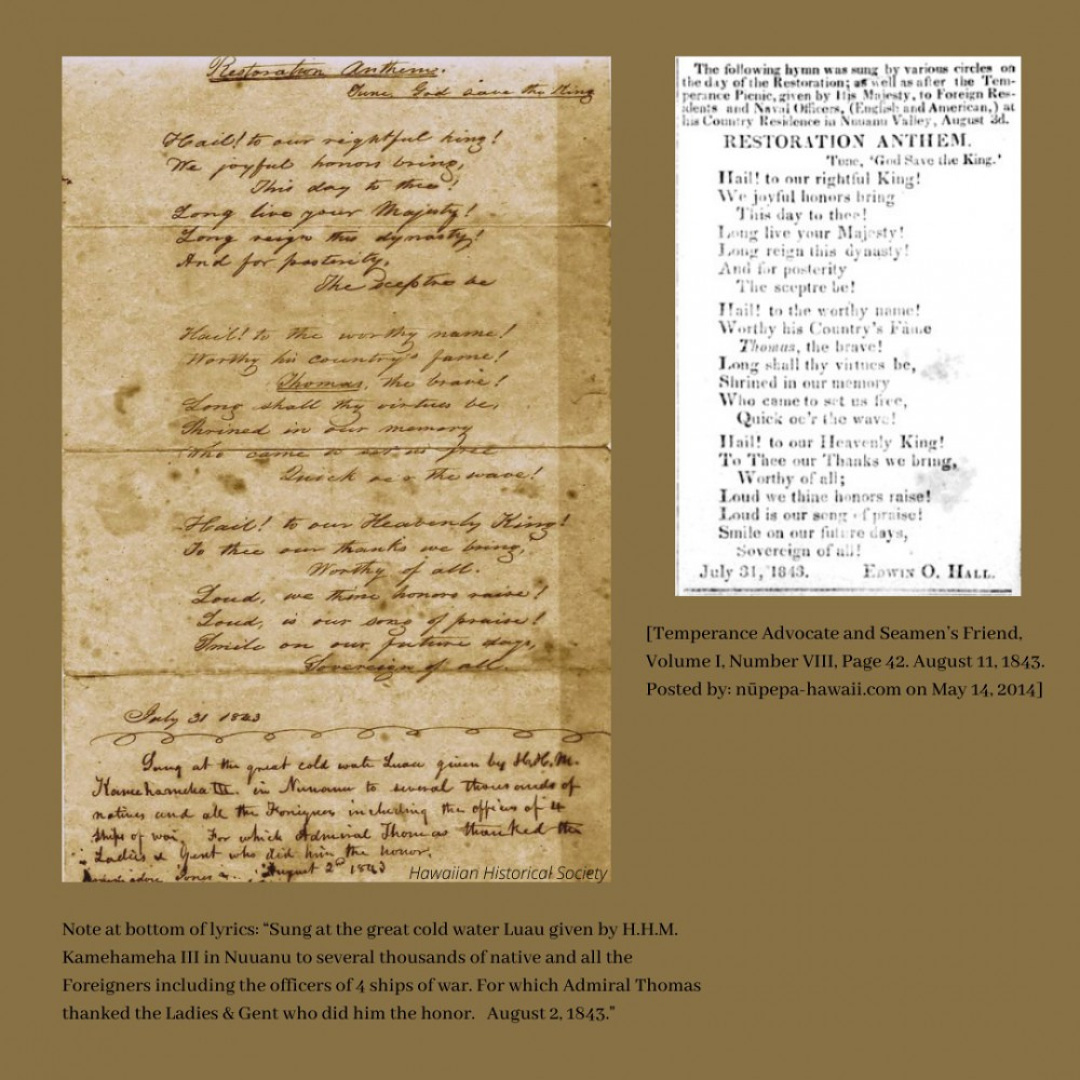 Restoration Anthem.
Tune, God save the King
Hail! to our rightful king!
We joyful honors bring,
This day to thee!
Long live your Majesty!
Long reign this dynasty!
And for posterity,
The sceptre be
Hail! to the worthy name!
Worthy his country's fame!
Thomas, the brave!
Long shall thy virtues be,
Shrined in our memory
Who came to set us free
Quick oe'r the wave!
Hail! to our Heavenly King!
To thee our thanks we bring,
Worthy of all.
Loud, we thine honors raise!
Loud, is our song of praise!
Smile on our future days,
Sovereign of all.
July 31 1843
Sung at the great cold water Luau given by H.H.M.
Kamehameha III. in Nuuanu to several thousands of
natives and all the Foreigners including the officers of 4
ships of war. For which Admiral Thomas thanked the
Ladies & Gent who did him the honor.
Jones August 2d 1843
Hawaiian Historical Society
The following hymn was sung by various circles on
the day of the Restoration; as well as after the Tem-
perance Picnic, given by His Majesty, to Foreign Res-
idents and Naval Officers, (English and American,) at
his Country Residence in Nuuanu Valley, August 3d.
RESTORATION ANTHEM.
Tune, 'God Save the King.'
Hail! to our rightful King!
We joyful honors bring
This day to thee!
Long live your Majesty!
Long reign this dynasty!
And for posterity
The sceptre be!
Hail! to the worthy name!
Worthy his Country's Fame
Thomas, the brave!
Long shall thy virtues be,
Shrined in our memory
Who came to set us free,
Quick oe'r the wave!
Hail! to our Heavenly King!
To Thee our Thanks we bring,
Worthy of all;
Loud we thine honors raise!
Loud is our song of praise!
Smile on our future days,
Sovereign of all!
July 31, 1843. EDWIN O. HALL.
[Temperance Advocate and Seamen's Friend,
Volume I, Number VIII, Page 42. August 11, 1843.
Posted by: nūpepa-hawaii.com on May 14, 2014]
Note at bottom of lyrics: "Sung at the great cold water Luau given by H.H.M.
Kamehameha III in Nuuanu to several thousands of native and all the
Foreigners including the officers of 4 ships of war. For which Admiral Thomas
thanked the Ladies & Gent who did him the honor. August 2, 1843."